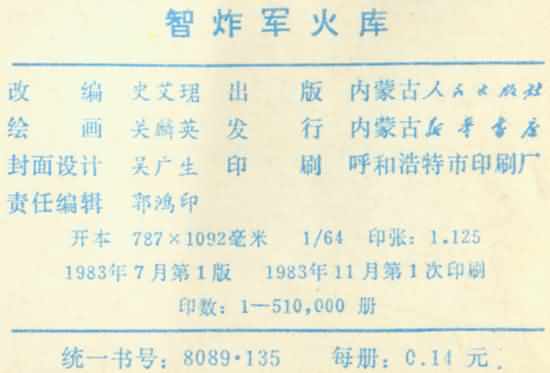 智炸军火库
改 编 史艾珺 出 版 内蒙古人民出版社
绘 画 关麟英 发 行 内蒙古新华书店
封面设计 吴广生 印 刷 呼和浩特市印刷厂
责任编辑 郭鸿印
开本 787×1092毫米 1/64 印张:1.125
1983年7月第1版 1983年11月第1次印刷
印数:1—510,000 册
统一书号:8089·135 每册:0.14 元